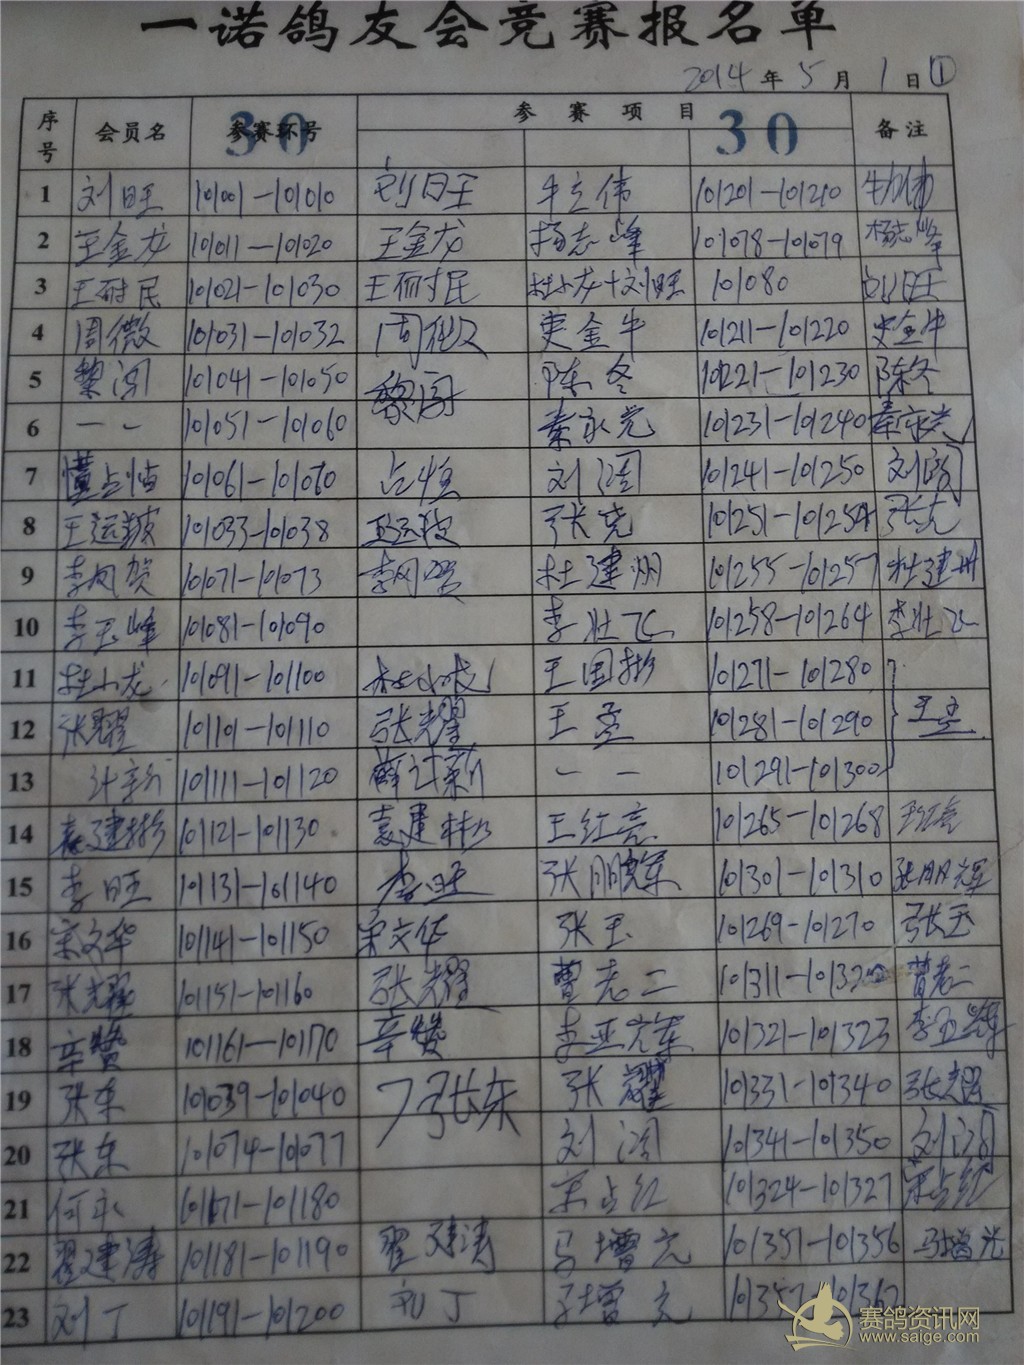 一诺鸽友会竞赛报名单
2014年5月1日①
序号 会员名 参赛环号 参赛项目 备注
30 30
1 刘旺 101001-101010 刘旺 牛立伟 101201-101210 牛立伟
2 王金龙 101011-101020 王金龙 杨志峰 101078-101079 杨志峰
3 王耐民 101021-101030 王耐民 杜小龙+刘旺 101080 刘旺
4 周微 101031-101032 周微 吏金牛 101211-101220 史金牛
5 黎阔 101041-101050 黎阔 陈冬 101221-101230 陈冬
6 一一 101051-101060 秦永党 101231-101240
7 101061-101070 占恒 刘阔 101241-101250 刘阔
8 王运 101033-101038 张克 101251-101254 张克
9 李凤贺 101071-101073 李凤贺 杜建州 101255-101257 杜建州
10 李玉峰 101081-101090 李壮飞 101258-101264 李壮飞
11 杜小龙 101091-101100 杜小龙 王国彬 101271-101280
12 张耀 101101-101110 张光耀 王奎 101281-101290 王奎
13 计新 101111-101120 薛计新 一一 101291-101300
14 袁建彬 101121-101130 袁建彬 王红亮 101265-101268 王红亮
15 李旺 101131-101140 李旺 张鹏辉 101301-101310 张朋辉
16 宋文华 101141-101150 宋文华 张玉 101269-101270 张玉
17 张光耀 101151-101160 张光耀 曹老二 101311-101320 曹老二
18 辛赞 101161-101170 辛赞 李亚辉 101321-101323 李亚辉
19 张东 101039-101040 张东 张耀 101331-101340 张光耀
20 张东 101074-101077 刘阔 101341-101350 刘阔
21 何永 101171-101180 宋占红 101324-101327 宋占红
22 翟建涛 101181-101190 翟建涛 马增光 101351-101356 马增光
23 刘丁 101191-101200 刘丁 增光 101357-101362
赛鸽资讯网
www.saige.com